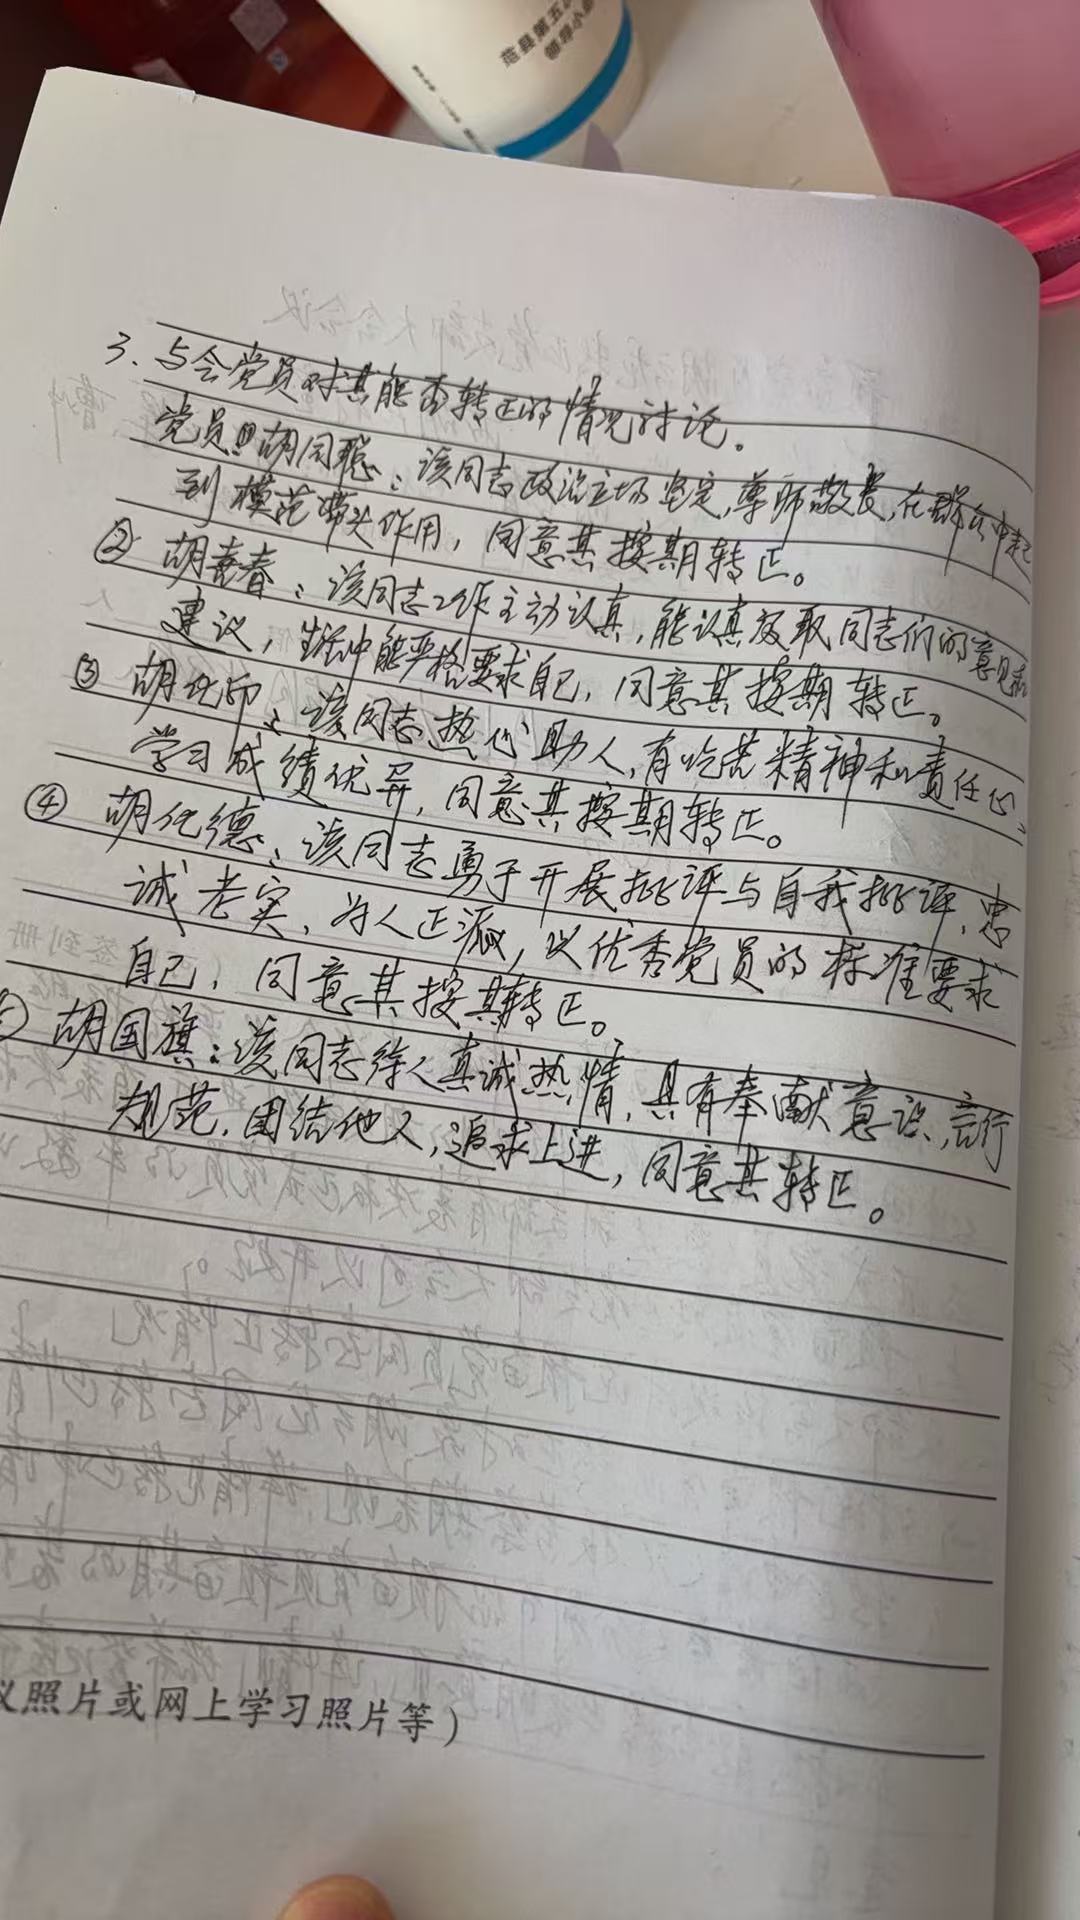 范县第五
领导小
3.与会党员对其能否转正的情况讨论。
党员①胡同聪:该同志政治立场坚定,尊师敬长,在群众中起
到模范带头作用,同意其按期转正。
② 胡青春:该同志工作主动认真,能认真汲取同志们的意见和
建议,生活中能严格要求自己,同意其按期转正。
③ 胡化印:该同志热心助人,有吃苦精神和责任心,
学习成绩优异,同意其按期转正。
④ 胡化德:该同志勇于开展批评与自我批评,忠
诚老实,为人正派,以优秀党员的标准要求
自己,同意其按期转正。
⑤ 胡国旗:该同志待人真诚热情,具有奉献意识,言行
规范,团结他人,追求上进,同意其转正。
议照片或网上学习照片等)